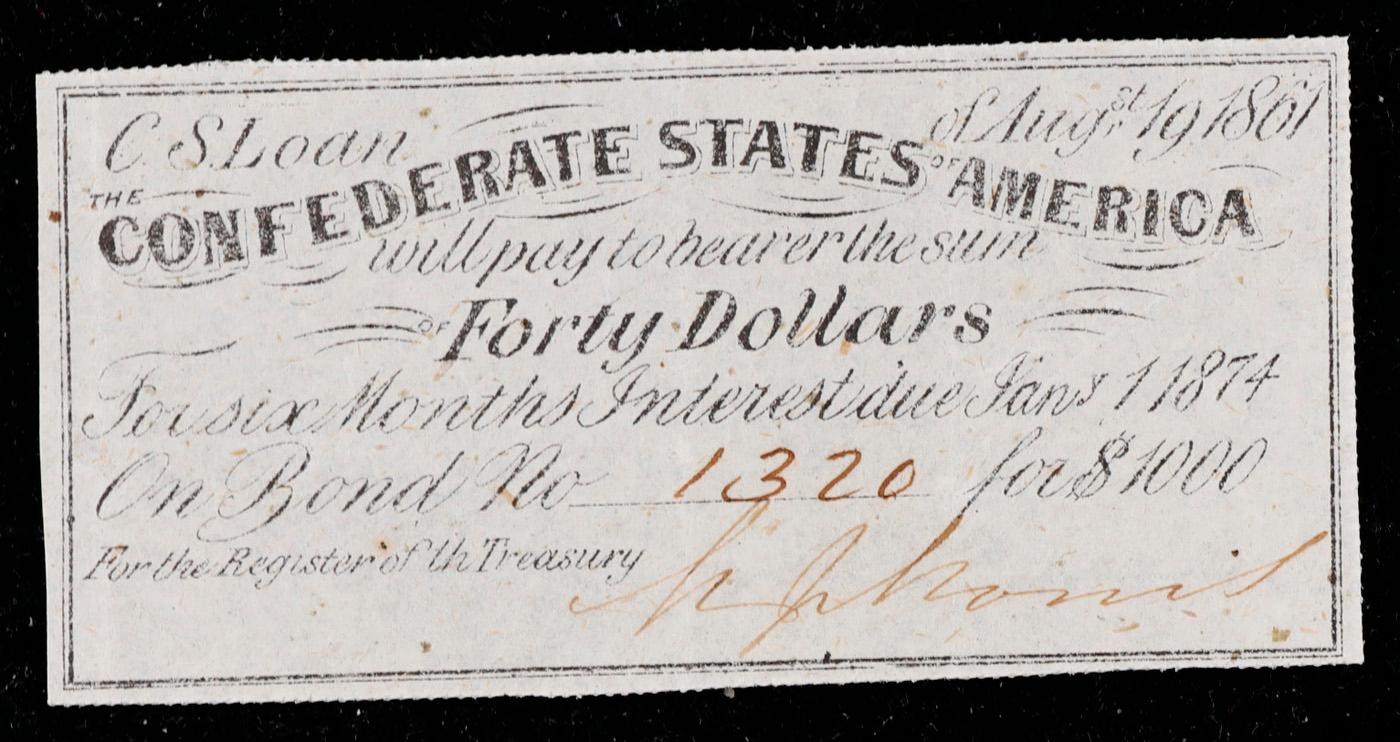 C. S. Loan of Augst 19 1861
THE CONFEDERATE STATES OF AMERICA
will pay to bearer the sum
OF Forty Dollars
For six Months Interest due Jany 1 1874
On Bond No 1320 for $1000
For the Register of th Treasury